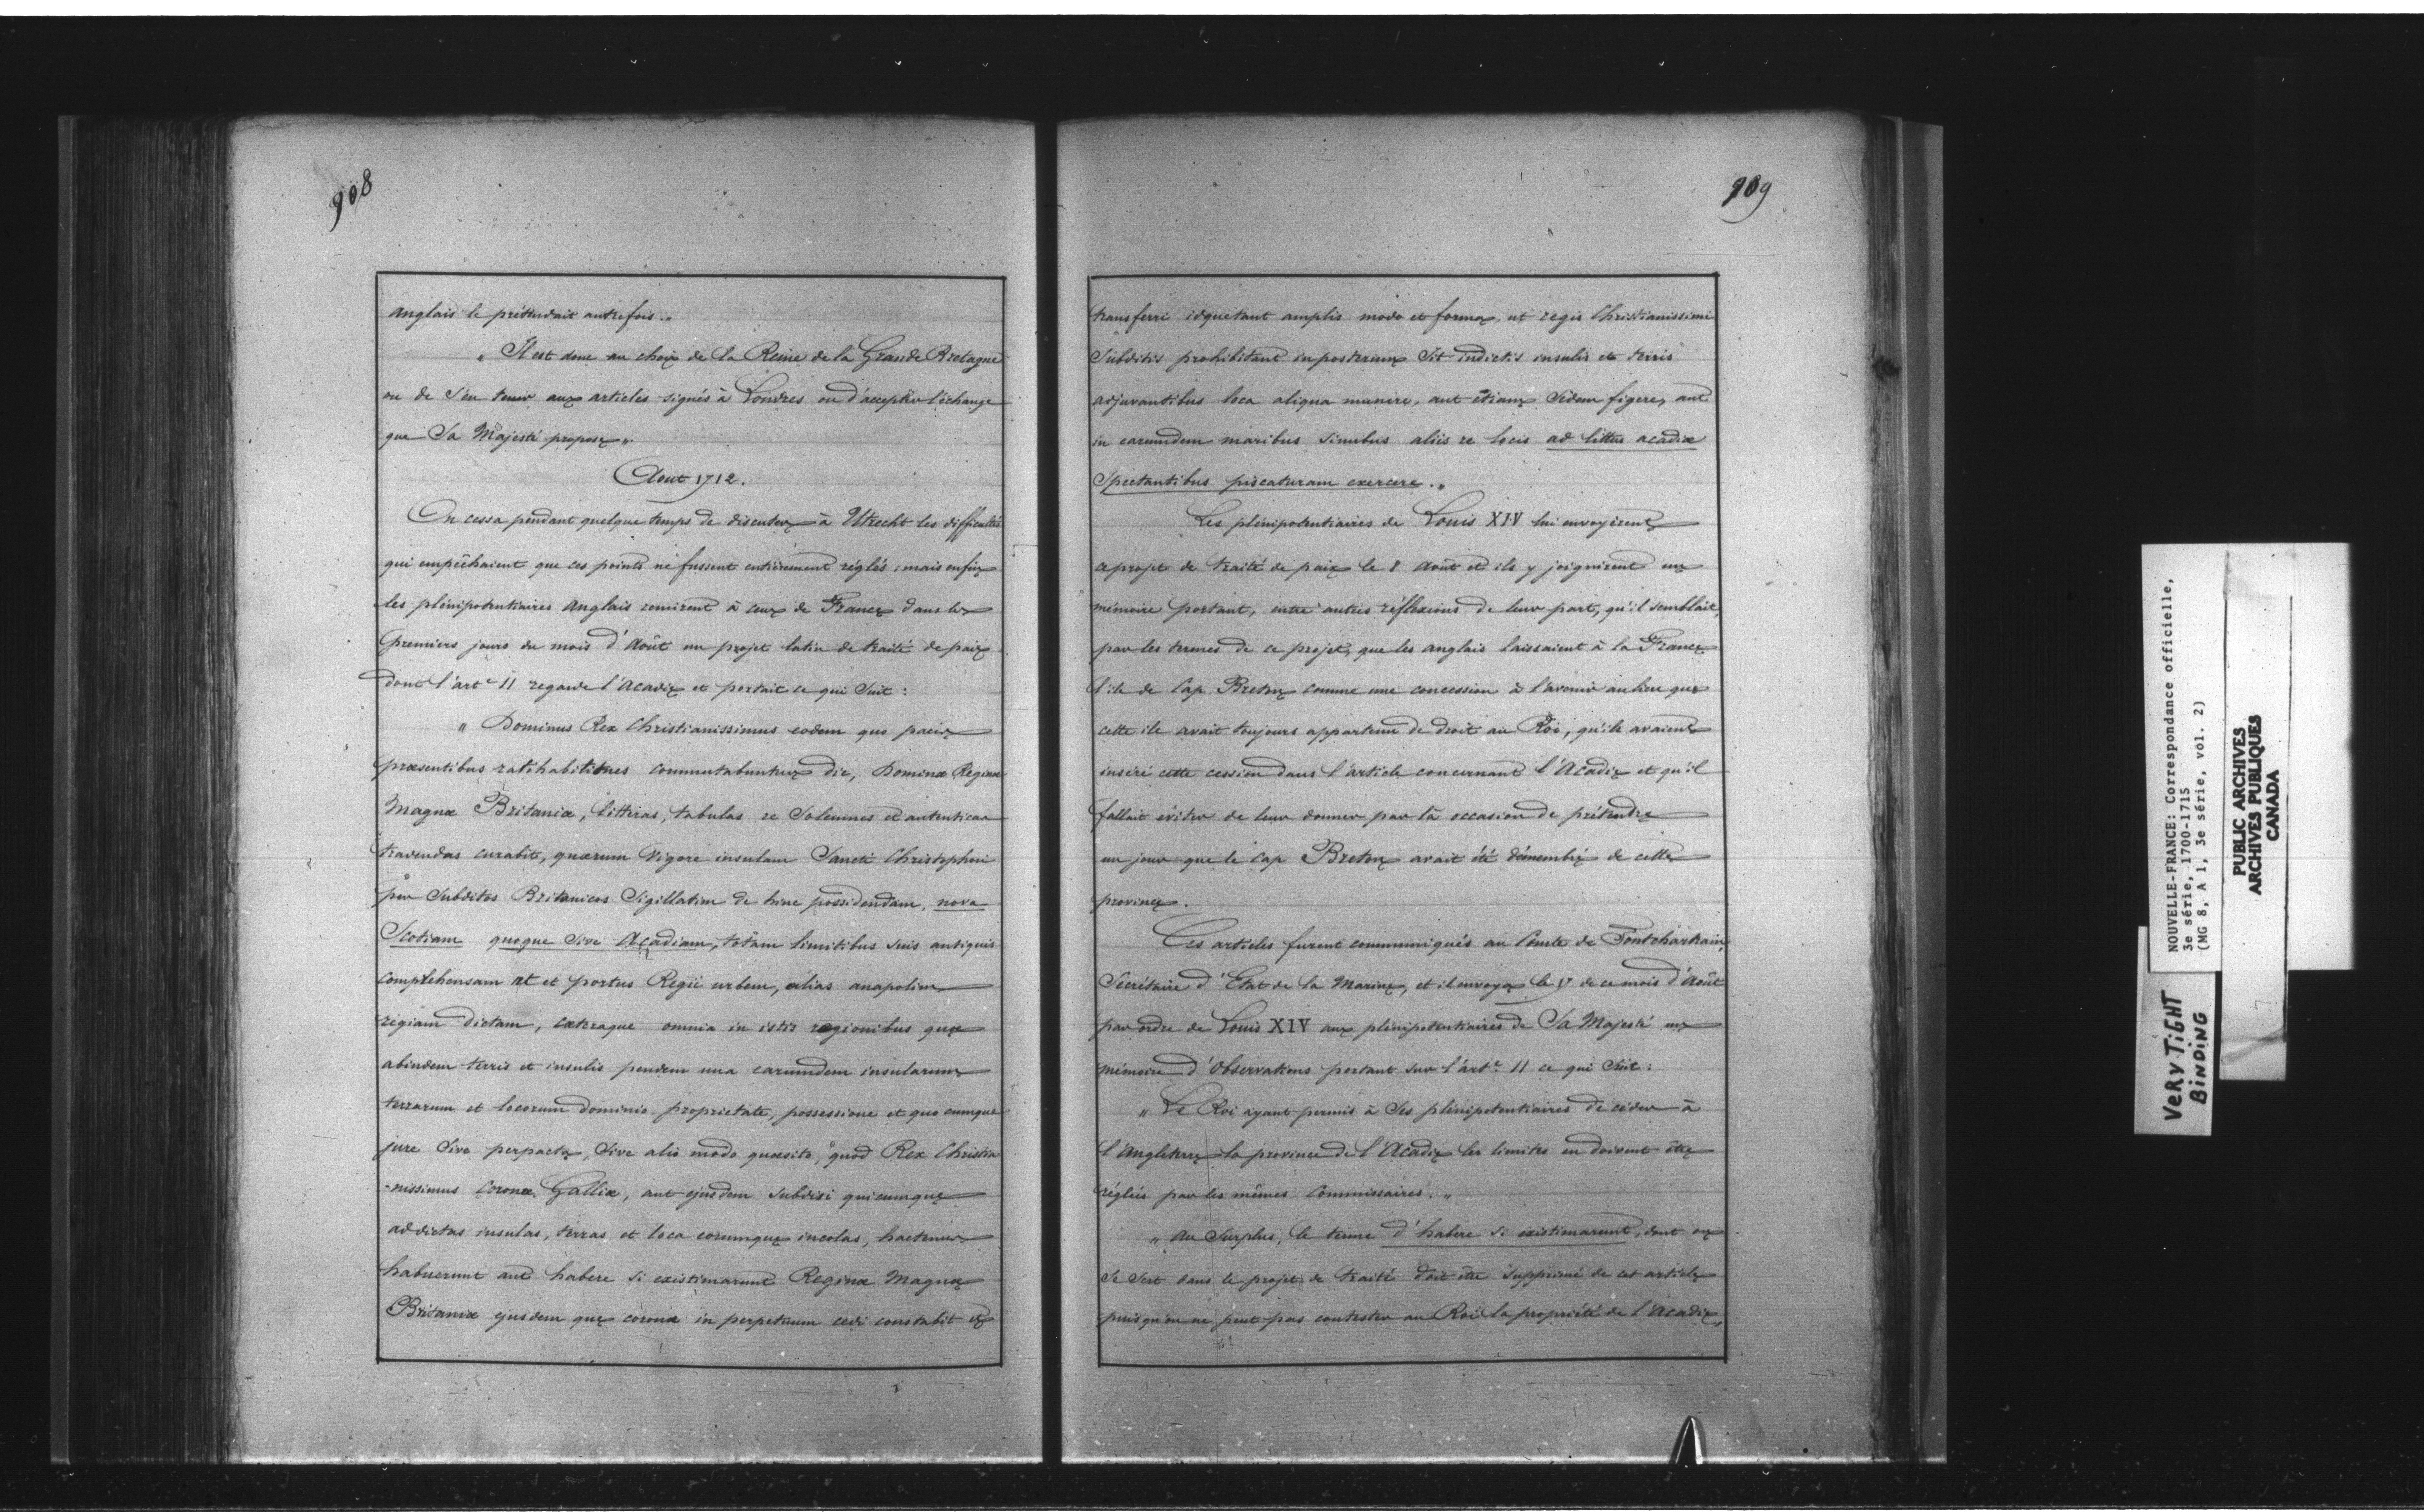 908
anglais le prétendait autrefois. „
„ Il est donc au choix de la Reine de la Grande Bretagne
ou de s'en tenir aux articles signés à Londres ou d'accepter l'échange
que Sa Majesté propose „
Aout 1712.
On cessa pendant quelque temps de discuter à Utrecht les difficultés
qui empêchaient que ces points ne fussent entièrement réglés ; mais enfin
les plénipotentiaires anglais remirent à ceux de France dans les
premiers jours du mois d'Août un projet latin de traité de paix
dont l'art.e 11 regarde l'Acadie et portait ce qui suit :
„ Dominus Rex Christianissimus eodem quo pacis
præsentibus ratihabitiones commutabuntur die, Dominæ Reginæ
Magnæ Britaniæ, litteras, tabulas re solemnes et autenticas
travendas curabit, quarum vigore insulam Sancti Christophori
per subditos Britanicos sigillatim de hinc possidendam, nova
Scotiam quoque sive Acadiam, totam limitibus suis antiquis
complehensam ut et portus Regii urbem, alias anapolim
regiam dictam, cæteraque omnia in istis regionibus quæ
abindem terris et insulis pendem una earumdem insularum
terrarum et locorum dominio proprietate, possessione et quo cumque
jure sive perpacta, sive alio modo quæsito, quod Rex Christia
-nissimus coronæ Galliæ, aut ejusdem subdisi quicumque
ad dictas insulas, terras et loca eorumque incolas, hactenus
habuerunt aut habere si existimarunt Reginæ Magnæ
Britaniæ ejusdem que coronæ in perpetuum cedi constabit et
909
transferri idquetant amplis modo et forma, ut regis Christianissimi
subditis prohibitant inposterium sit indictis insulis et terris
adjuvantibus loca aliqua munire, aut etiam sedem figere, aut
in earumdem maribus sinubus aliis re locis ad littus acadiæ
spectantibus piscaturam exercere. „
Les plénipotentiaires de Louis XIV lui envoyèrent
ce projet de traité de paix le 8 Août et ils y joignirent un
mémoire portant, entre autres réflexions de leur part, qu'il semblait,
par les termes de ce projet, que les anglais laissaient à la France
l'ile de Cap Breton comme une concession à l'avenir au lieu que
cette ile avait toujours appartenu de droit au Roi, qu'ils avaient
inséré cette cession dans l'article concernant l'Acadie et qu'il
fallait éviter de leur donner par là occasion de prétendre
un jour que le Cap Breton avait été démembré de cette
province.
Ces articles furent communiqués au Comte de Pontchartrain,
Secrétaire d'Etat de la Marine, et il envoya le de ce mois d'Août
par ordre de Louis XIV aux plénipotentiaires de Sa Majesté un
mémoire d'Observations portant sur l'art.e 11 ce qui suit :
„ Le Roi ayant permis à ses plénipotentiaires de céder à
l'Angleterre la province de l'Acadie les limites en doivent être
réglées par les mêmes Commissaires. „
„ au surplus, le terme d'habere si existimarunt, dont on
se sert dans le projet de traité doit être supprimé de cet article
puisqu'on ne peut pas contester au Roi la propriété de l'Acadie,
NOUVELLE-FRANCE: Correspondance officielle,
3e série, 1700-1715
(MG 8, A 1, 3e série, vol. 2)
PUBLIC ARCHIVES
ARCHIVES PUBLIQUES
CANADA
VERY TiGHT
BINDING